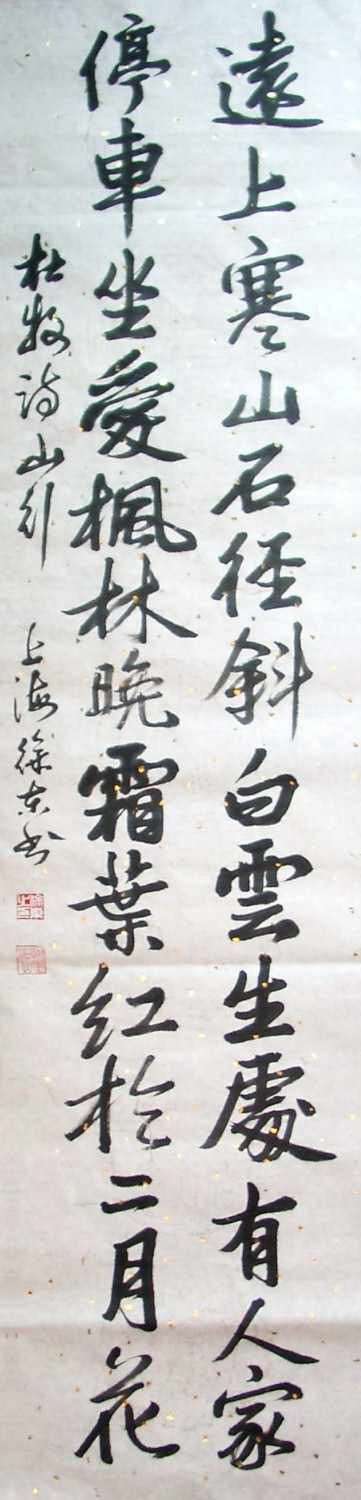 遠上寒山石徑斜白雲生處有人家
停車坐愛楓林晚霜葉紅於二月花
杜牧詩山行 上海徐东书